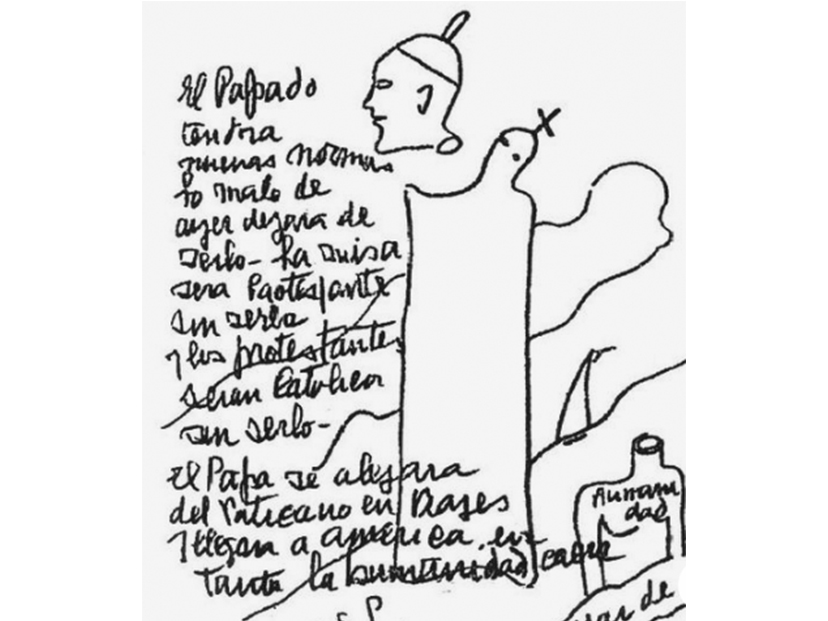 El Papado
tendra
nuevas normas
lo malo de
ayer dejara de
serlo- La misa
sera Protestante
sin serlo
y los protestantes
seran Catolicos
sin serlo-
El Papa se alejara
del Vaticano en viajes
y llegara a américa en
tanto la humanidad caera
Humani
dad
de
S P